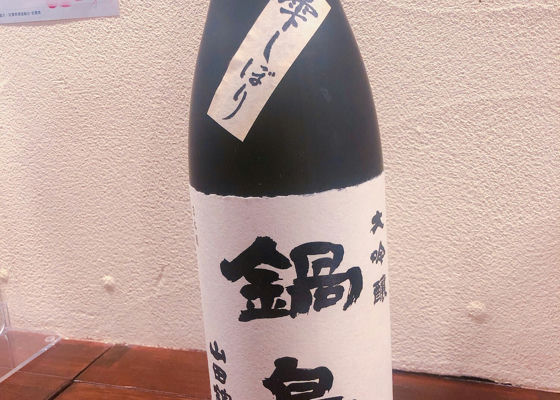 雫しぼり
大吟醸
鍋島
山田錦